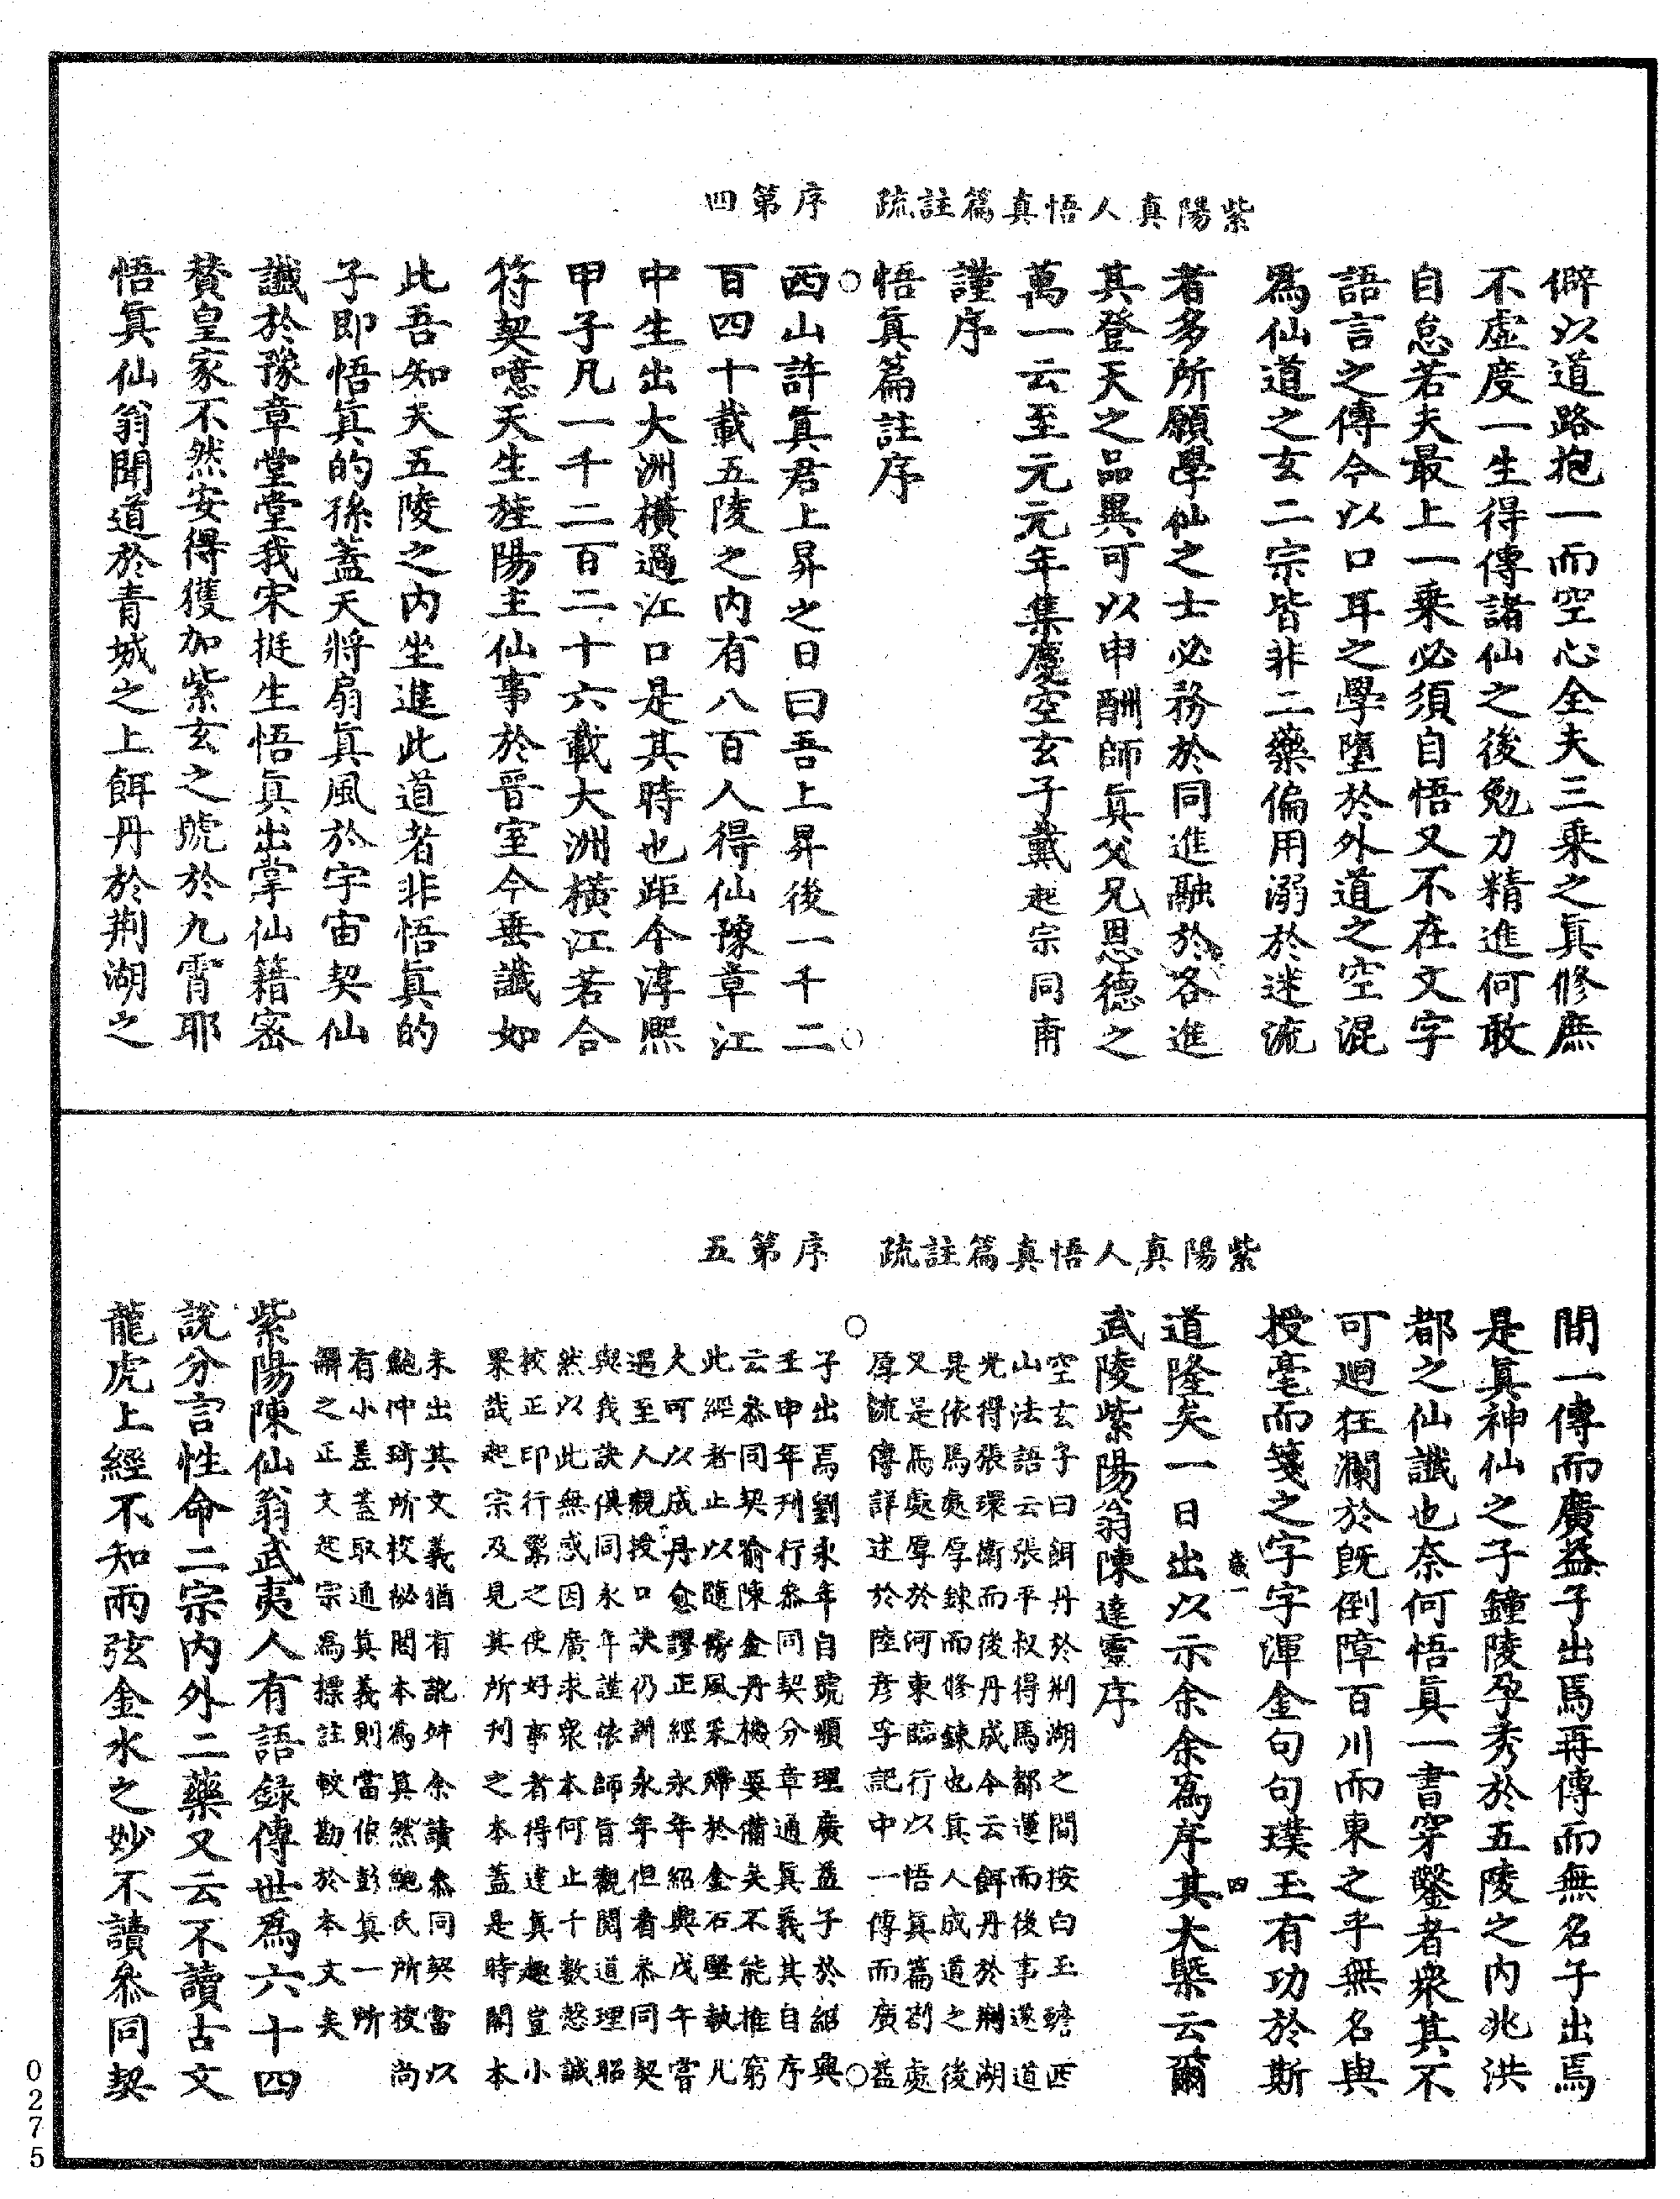 紫陽真人悟真篇註疏　序第四
僻以道路抱一而空心全夫三乘之眞修庶
不虛度一生得傳諸仙之後勉力精進何敢
自怠若夫最上一乘必須自悟又不在文字
語言之傳今以口耳之學墮於外道之空混
爲仙道之玄二宗皆非二藥偏用溺於迷流
者多所願學仙之士必務於同進融於各進
其登天之品異可以申酬師眞父兄恩德之
萬一云至元元年集慶空玄子戴起宗同甫
謹序
悟眞篇註序
西山許眞君上昇之日曰吾上昇後一千二
百四十載五陵之内有八百人得仙豫章江
中生出大洲橫過江口是其時也距今淳熙
甲子凡一千二百二十六載大洲橫江若合
符契噫天生旌陽主仙事於晉室今垂讖如
此吾知天五陵之内坐進此道者非悟眞的
子即悟眞的孫蓋天將扇眞風於宇宙契仙
讖於豫章堂堂我宋挺生悟眞出掌仙籍密
賛皇家不然安得獲加紫玄之號於九霄耶
悟眞仙翁聞道於青城之上餌丹於荆湖之
紫陽真人悟真篇註疏　序第五
間一傳而廣益子出焉再傳而無名子出焉
是眞神仙之子鐘陵孕秀於五陵之内兆洪
都之仙讖也奈何悟眞一書穿鑿者衆其不
可廻狂瀾於旣倒障百川而東之乎無名與
授毫而箋之字字渾金句句璞玉有功於斯
道隆矣一日出以示余余爲序其大槩云爾
武陵紫陽翁陳達靈序
空玄子曰餌丹於荆湖之間按白玉蟾西
山法語云張平叔得馬都運而後事遂道
光得張環衛而後丹成今云餌丹於荆湖
是依馬處厚錬而修錬也眞人成道之後
又是馬處厚於河東臨行以悟眞篇劄處
厚流傳詳述於陸彦孚記中一傳而廣益
子出焉劉永年自號順理廣益子於紹興
壬申年刊行叅同契分章通眞義其自序
云叅同契俞陳金丹機要備矣不能推窮
此經者止以隨傍風采歸於金石壓執凡
大可以成丹愈謬正經永年紹興戊午嘗
遇至人親授口訣仍訓永年但看叅同契
與我訣俱同永年謹依師旨觀閱道理昭
然以此無惑因廣求衆本何止千數憖誠
挍正印行驚之使好事者得達眞趣豈小
果哉起宗及見其所刊之本蓋是時閣本
未出其文義猶有訛舛余讀叅同契當以
鮑仲琦所挍祕閣本爲眞然鮑氏所挍尚
有小差蓋取通眞義則當依彭眞一所
解之正文起宗爲摽註較勘於本文矣
紫陽陳仙翁武夷人有語錄傳世爲六十四
說分言性命二宗内外二藥又云不讀古文
龍虎上經不知兩弦金水之妙不讀叅同契
0275